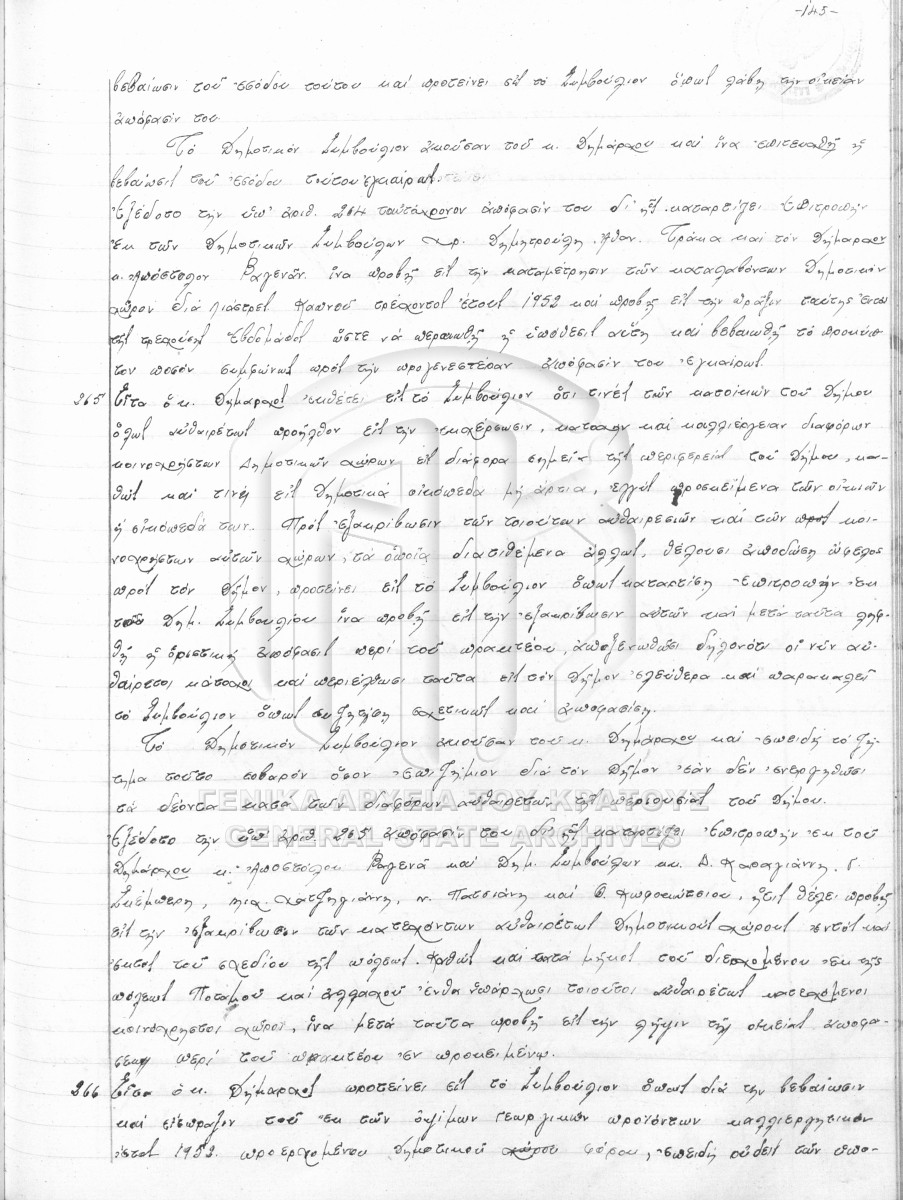 -145-
βεβαίωσιν τοῦ ἐσόδου τούτου καί προτείνει εἰς τό Συμβούλιον ὅπως λάβῃ τήν οἰκείαν
ἀπόφασίν του
Τό Δημοτικόν Συμβούλιον ἀκοῦσαν τοῦ κ. Δημάρχου καί ἵνα ἐπιτευχθῇ ἡ
βεβαίωσις τοῦ ἐσόδου τούτου ἐγκαίρως
Ἐξέδοτο τήν ὑπ' ἀριθ. 264 ταὐτόχρονον ἀπόφασίν του δι' ἧς καταρτίζει Ἐπιτροπήν
ἐκ τῶν Δημοτικῶν Συμβούλων Χρ. Δημητρούλη Ἀθαν. Τράκα καί τόν Δήμαρχον
κ. Ἀπόστολον Ραγενᾶν ἵνα προβῇ εἰς τήν καταμέτρησιν τῶν καταλαβόντων Δημοτικόν
χῶρον διά λιάστρες Καπνοῦ τρέχοντος ἔτους 1952 καί προβῇ εἰς τήν πρᾶξιν ταύτης ἐντός
τῆς τρεχούσης ἑβδομάδος ὥστε νά περατωθῇ ἡ ὑπόθεσις αὕτη καί βεβαιωθῇ τό προκύπ-
τον ποσόν συμφώνως πρός τήν προγενεστέραν ἀπόφασίν του ἐγκαίρως.
265 Εἶτα ὁ κ. Δήμαρχος ἐκθέτει εἰς τό Συμβούλιον ὅτι τινές τῶν κατοίκων τοῦ Δήμου
ὅλως αὐθαιρέτως προῆλθον εἰς τήν ἐκχέρσωσιν, κατοχήν καί καλλιέργειαν διαφόρων
κοινοχρήστων Δημοτικῶν χώρων εἰς διάφορα σημεῖα τῆς περιφερείας τοῦ Δήμου, κα-
θώς καί τινές εἰς Δημοτικά οἰκόπεδα μή ἄρτια, ἐγγύς προσκείμενα τῶν οἰκιῶν
ἤ οἰκόπεδά των. Πρός ἐξακρίβωσιν τῶν τοιούτων αὐθαιρεσιῶν καί τῶν κοι-
νοχρήστων αὐτῶν χώρων, τά ὁποῖα διατιθέμενα ἄλλως, θέλουσι ἀποδώσῃ ὠφέλος
πρός τόν Δῆμον, προτείνει εἰς τό Συμβούλιον ὅπως καταρτίσῃ Ἐπιτροπήν ἐκ
τοῦ Δημ. Συμβουλίου ἵνα προβῇ εἰς τήν ἐξακρίβωσιν αὐτῶν καί μετά ταῦτα ληφ-
θῇ ἡ ὁριστική ἀπόφασις περί τοῦ πρακτέου, ἀποξενωθῶσι δηλονότι οἱ νῦν αὐ-
θαίρετοι κάτοχοι καί περιέλθωσι ταῦτα εἰς τόν Δῆμον ἐλεύθερα καί παρακαλεῖ
τό Συμβούλιον ὅπως συζητήσῃ σχετικῶς καί ἀποφασίσῃ.
Τό Δημοτικόν Συμβούλιον ἀκοῦσαν τοῦ κ. Δημάρχου καί ἐπειδή τό ζή-
τημα τοῦτο σοβαρόν ὅσον ἐπιζήμιον διά τόν Δῆμον ἐάν δέν ἐνεργηθῶσι
τά δέοντα κατά τῶν διαφόρων αὐθαιρετῶν τῆς περιουσίας τοῦ Δήμου.
Ἐξέδοτο τήν ὑπ' ἀριθ. 265 ἀπόφασίν του δι' ἧς καταρτίζει Ἐπιτροπήν ἐκ τοῦ
Δημάρχου κ. Ἀποστόλου Ραγενᾶ καί Δημ. Συμβούλων κ.κ. Δ. Καραγιάννη, Γ.
Σκέμπερη, Ηλ. Χατζηγιάννη, Ν. Πατσιάνη καί Θ. Κωφοκώτσιου, ἥτις θέλει προβῇ
εἰς τήν ἐξακρίβωσιν τῶν κατεχόντων αὐθαιρέτως Δημοτικούς χώρους ἐντός καί
ἐκτός τοῦ σχεδίου τῆς πόλεως καθώς καί κατά μῆκος τοῦ διερχομένου ἐκ τῆς
πόλεως Ποταμοῦ καί ἀλλαχοῦ ἔνθα ὑπάρχωσι τοιοῦτοι αὐθαιρέτως κατεχόμενοι
κοινόχρηστοι χῶροι, ἵνα μετά ταῦτα προβῇ εἰς τήν λῆψιν τῆς οἰκείας ἀποφά-
σεως περί τοῦ πρακτέου ἐν προκειμένῳ.
266 Εἶτα ὁ κ. Δήμαρχος προτείνει εἰς τό Συμβούλιον ὅπως διά τήν βεβαίωσιν
καί εἴσπραξιν τοῦ ἐκ τῶν ὀψίμων γεωργικῶν προϊόντων καλλιεργητικόν
ἔτος 1952 προερχομένου Δημοτικοῦ φόρου, ἐπειδή οὐδείς τῶν ὑπο-
ΓΕΝΙΚΑ ΑΡΧΕΙΑ ΤΟΥ ΚΡΑΤΟΥΣ
GENERAL STATE ARCHIVES